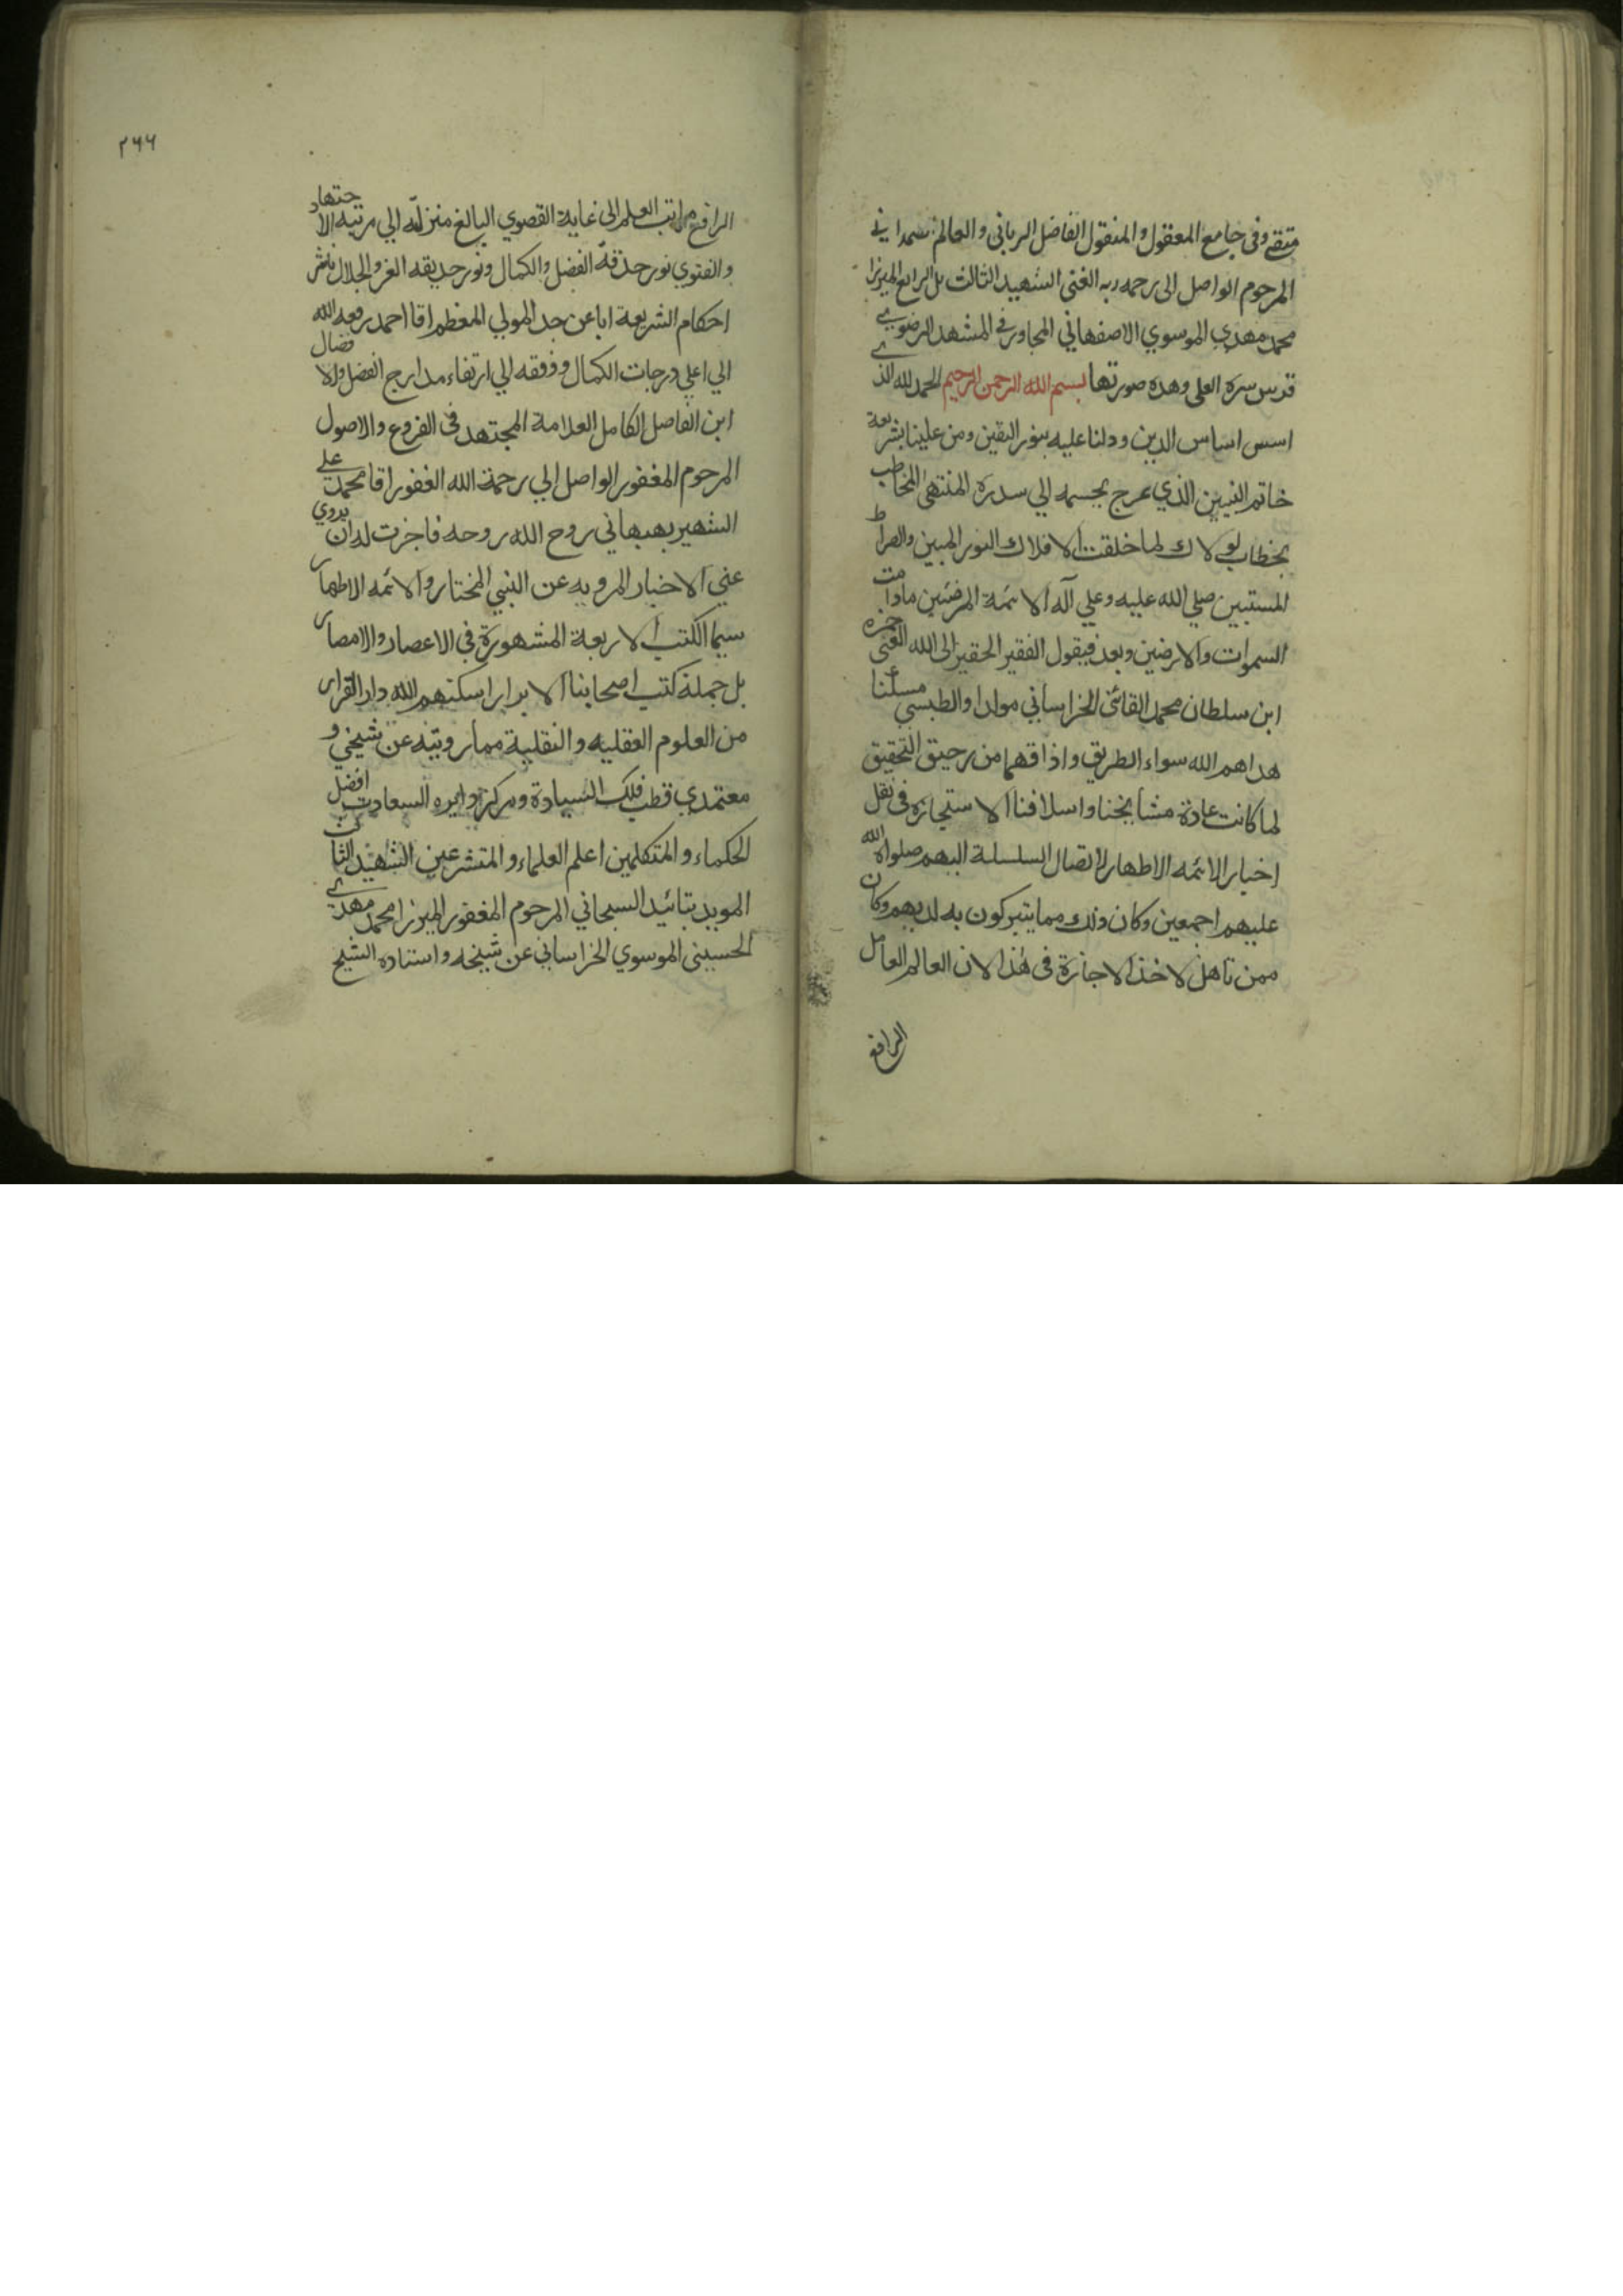 متقي وفى جامع المعقول والمنقول الفاضل الربانى والعالم الصمدانى
المرحوم الواصل الى رحمه ربه الغنى الشهيد الثالث بل الرابع الميرزا
محمد مهدي الموسوي الاصفهاني المجاور فى المشهد الرضوي
قدس سره العلى وهذه صورتها بسم الله الرحمن الرحيم الحمد لله الذي
اسس اساس الدين ودلنا عليه بنور اليقين ومن علينا بشريعة
خاتم النبيين الذي عرج بجسمه الي سدرة المنتهى المخاطب
بخطاب لولاك لما خلقت الافلاك النور المبين والصراط
المستبين صلي الله عليه وعلي آله الائمة المرضيين مادامت
السموات والارضين وبعد فيقول الفقير الحقير الى الله الغنى حمزه
ابن سلطان محمد القائنى الخراساني مولدا والطبسي مسكنا
هداهم الله سواء الطريق واذاقهما من رحيق التحقيق
لما كانت عادة مشايخنا واسلافنا الاستجازة فى نقل
اخبار الائمه الاطهار لاتصال السلسلة اليهم صلواة الله
عليهم اجمعين وكان ذلك مما يتبركون به لديهم وكان
ممن تاهل لاخذ الاجازة فى هذا الان العالم العامل
الرافع
٢٦٦
الرافع مراتب العلم الى غاية القصوي البالغ منزلته الي مرتبه الاجتهاد
والفتوي نور حدقة الفضل والكمال ونور حديقه العز والجلال ناشر
احكام الشريعة ابا عن جد المولي المعظم اقا احمد رفعه الله
الي اعلي درجات الكمال ووفقه الي ارتقاء مدارج الفضل والافضال
ابن الفاصل الكامل العلامة المجتهد فى الفروع والاصول
المرحوم المغفور الواصل الي رحمة الله الغفور اقا محمد علي
الشهير بهبهاني روح الله روحه فاجزت له ان يروي
عني الاخبار المرويه عن النبي المختار والائمه الاطهار
سيما الكتب الاربعة المشهورة فى الاعصار والامصار
بل جملة كتب اصحابنا الابرار اسكنهم الله دار القرار
من العلوم العقليه والنقلية مما رويته عن شيخي و
معتمدي قطب فلك السيادة ومركز دايره السعادت افضل
الحكماء والمتكلمين اعلم العلماء والمتشرعين الشهيد الثالث
المويد بتائيد السبحاني المرحوم المغفور الميرزا محمد مهدي
الحسينى الموسوي الخراساني عن شيخه واستاده الشيخ